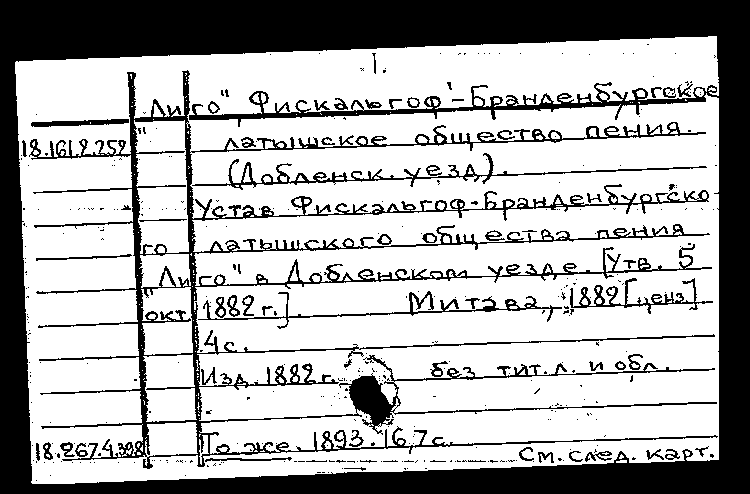 I.
Лиго" Фискальгоф-Бранденбургское
18.161.2.252 " латышское общество пения.
(Добленск. уезд).
Устав Фискальгоф-Бранденбургско-
го латышского общества пения
"Лиго" в Добленском уезде. [Утв. 5
окт 1882 г.]. Митава, 1882 [ценз].
4 с.
Изд. 1882 г. без тит. л. и обл.
18.267.4.398 То же. 1893. 16,7 с.
См. след. карт.